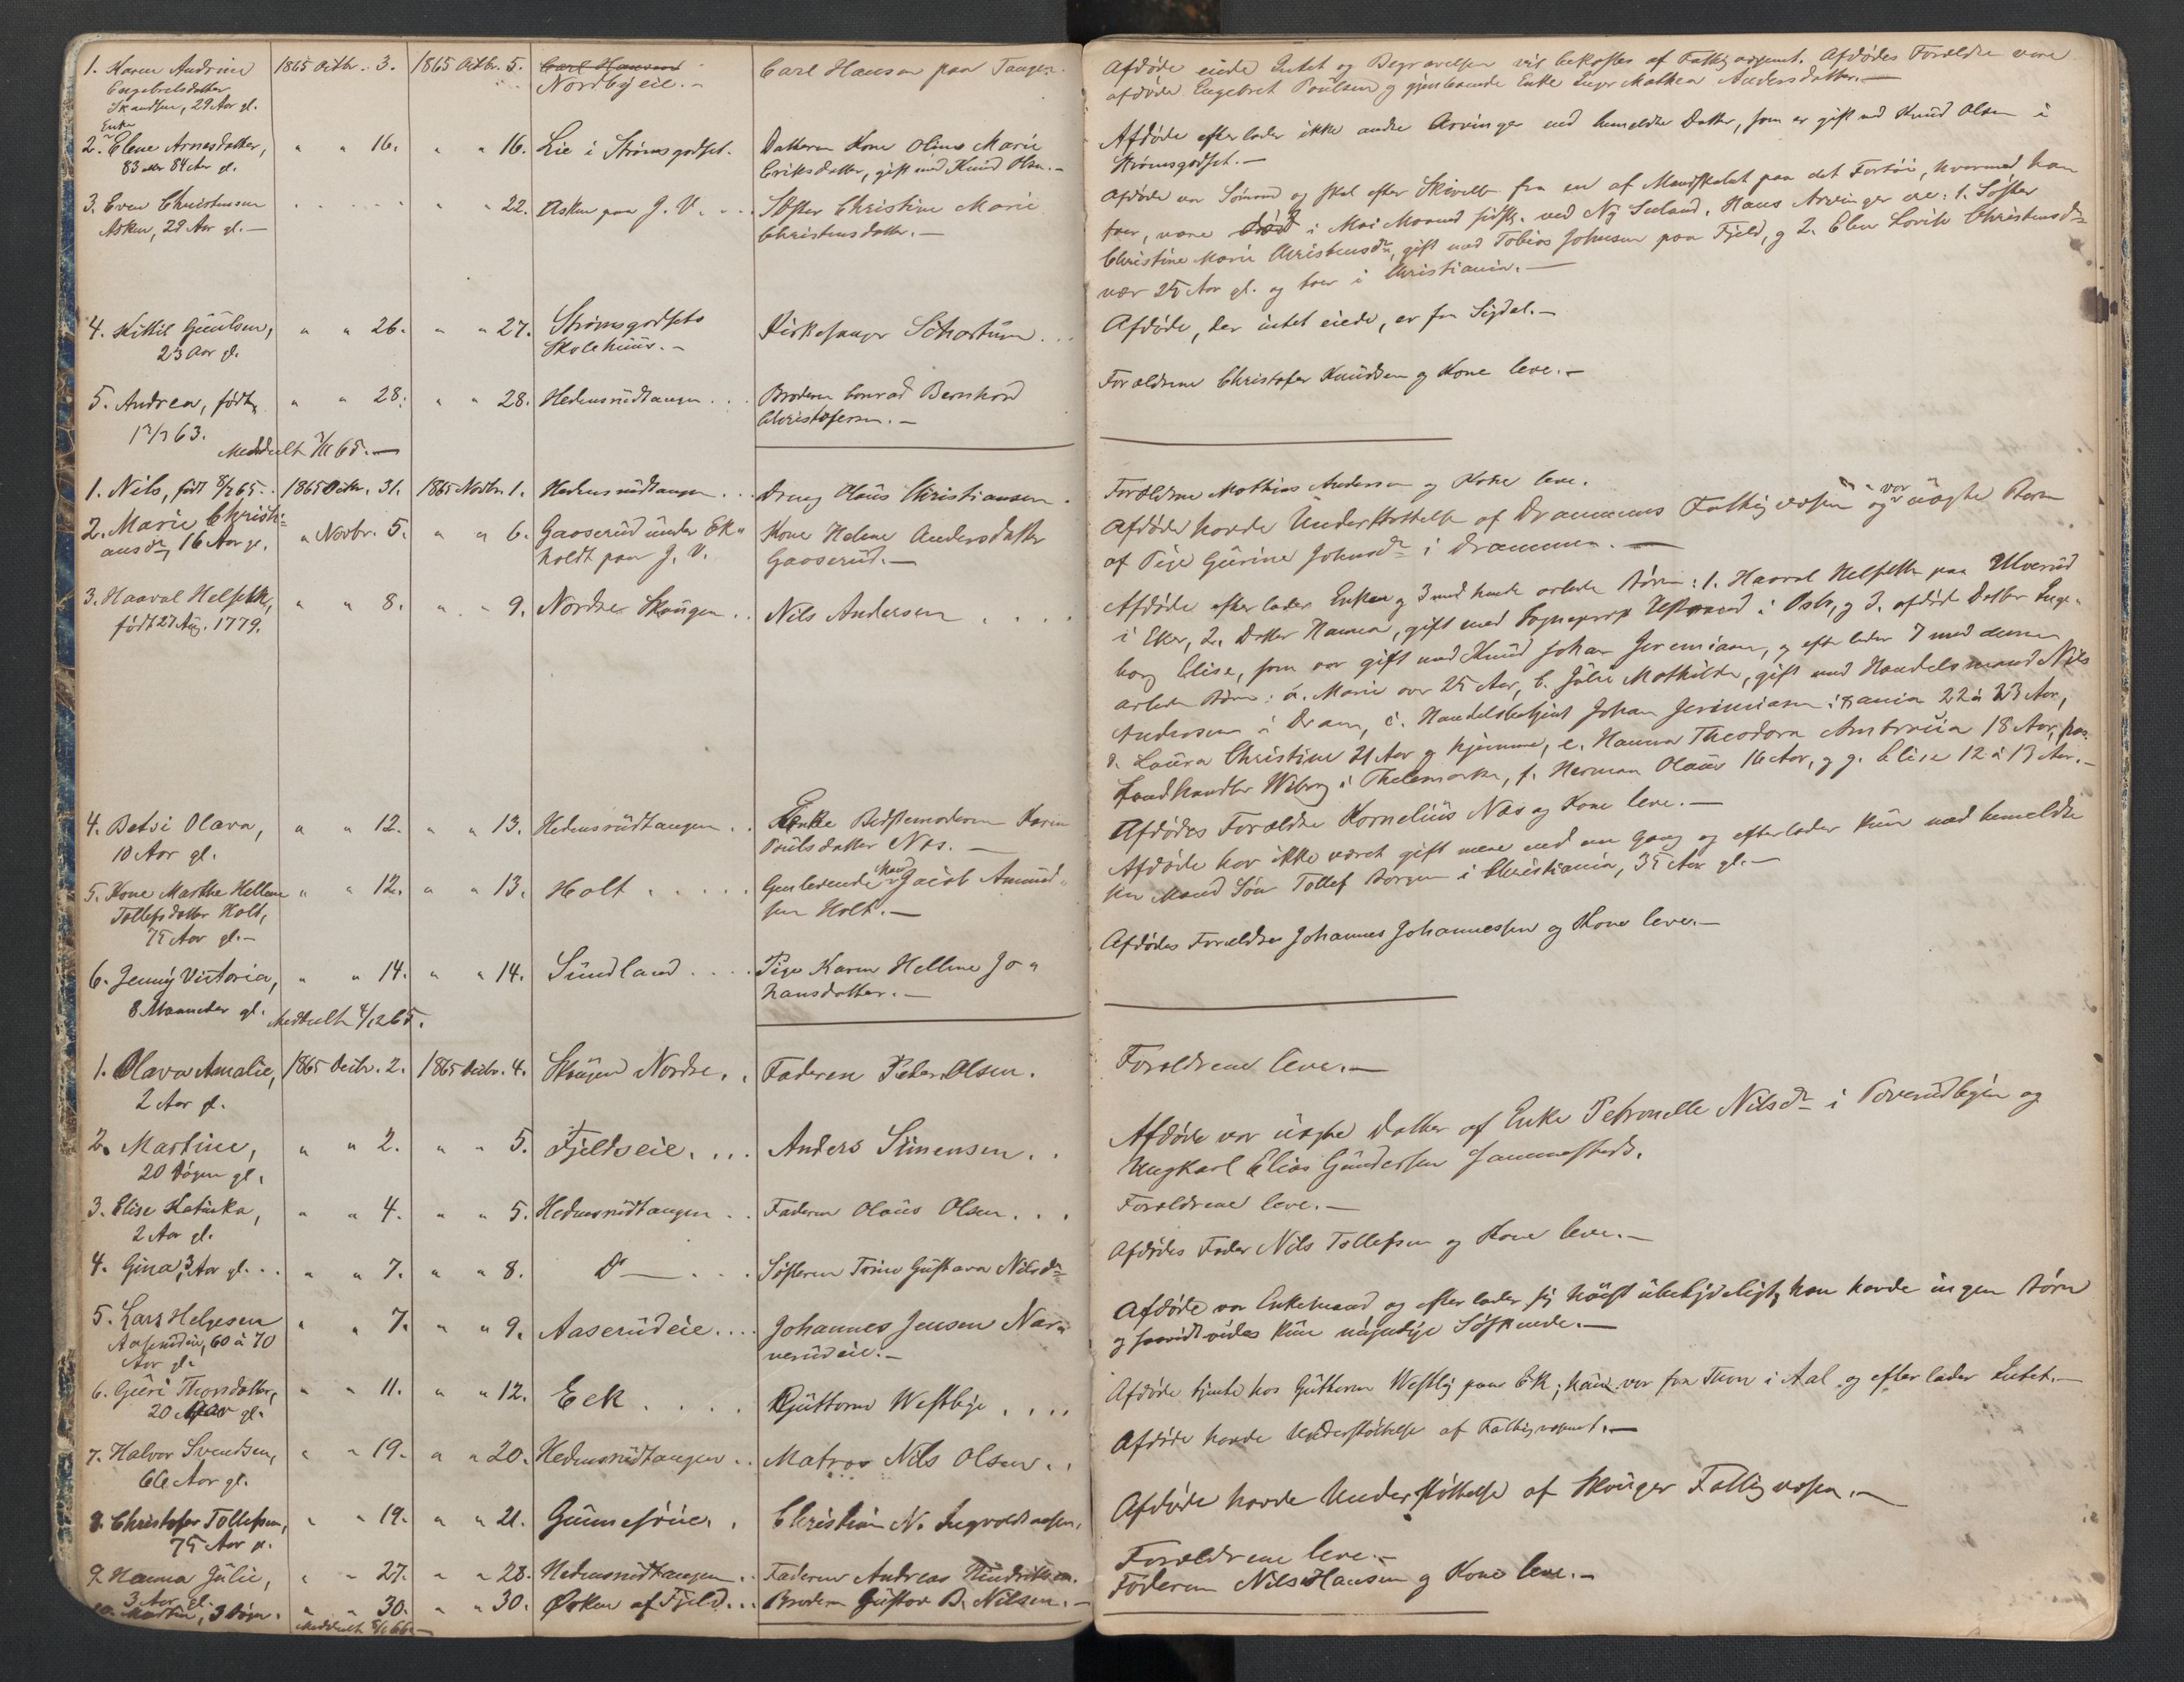 1. Karen Andrine 1865 Octbr. 3. 1865 Octbr. 5. Carl Hansen Carl Hansen paa Tangen.
Engebretsdatter Nordbyeie.-
Skandsen, 29 Aar gl.
Enke
2. Elene Arnesdatter, " " 16. " " 16. Lie i Strømsgodset. Datteren Kone Oline Marie
83 eller 84 Aar gl. Eriksdatter, gift med Knud Olsen.-
3. Even Christensen " " 22. Asken paa J. V. Søster Christine Marie
Asken, 29 Aar gl.- Christensdatter.-
4. Kittil Guulsen, " " 26. " " 27. Strømsgodsets Kirkesanger Schartum...
23 Aar gl. Skolehuus.-
5. Andrea, født " " 28. " " 28. Hedensrudtangen... Broderen Conrad Bernhard
63. Christofersen.-
Meddeelt 65.-
1. Nils, født 65.. 1865 Octbr. 31. 1865 Novbr. 1. Hedensrudtangen... Dreng Olaus Christiansen.
2. Marie Christi= " Novbr. 5. " " 6. Gaaserud under Ek= Kone Helene Andersdatter
ansdr, 16 Aar gl. holdt paa J. V. Gaaserud.-
3. Haaval Helsette, " " 8. " " 9. Nordre Skougen.. Nils Andersen....
født 27 Aug. 1779.
4. Betsi Olava, " " 12. " " 13. Hedensrudtangen.. Enke Bedstemoderen Karen
10 Aar gl. Poulsdatter Næs.-
5. Kone Marthe Hellene " " 12. " " 13. Holt..... Gjenlevende Mand Jacob Amund=
Tollefsdatter Holt, sen Holt.-
75 Aar gl.-
6. Jenny Victoria, " " 14. " " 14. Sundland.... Pige Karen Hellene Jo=
8 Maaneder gl. hansdatter.-
Meddeelt 4/12 65.
1. Olava Amalie, 1865 Decbr. 2. 1865 Decbr. 4. Skougen Nordre.. Faderen Peter Olsen.
2 Aar gl.
2. Martine, " " 2. " " 5. Fjeldseie.... Anders Simensen..
20 Døgn gl.
3. Elise Katinka, " " 4. " " 5. Hedensrudtangen.. Faderen Olaus Olsen...
2 Aar gl.
4. Gina, 3 Aar gl... " " 7. " " 8. Do - ... Søsteren Trine Gustava Nilsdr
5. Lars Helgesen " " 7. " " 9. Aaserudeie.... Johannes Jensen Nar=
Aaserudeie, 60 à 70 verudeie.-
Aar gl.
6. Guri Thorsdatter, " " 11. " " 12. Eek.... Guttorm Westbye....
20 Aar gl.
7. Halvor Svendsen, " " 19. " " 20. Hedensrudtangen.. Matros Nils Olsen..
66 Aar gl.
8. Christofer Tollefsen, " " 19. " " 21. Christian N. Ingvoldsen.
75 Aar gl.
9. Hanna Julie, " " 27. " " 28. Hedensrudtangen.. Faderen Andreas Hendriksen.
3 Aar gl.
10. Martin, 3 Døgn. " " 30. " " 30. Øsken af Fjeld... Broderen Gustav B. Nilsen.-
Meddeelt 66-
Afdøde eiede Intet og Begravelsen vil bekostes af Fattigvæsenet. Afdødes Forældre vare
afdøde Engebret Poulsen og gjenlevende Enke Inger Mathea Andersdatter.-
Afdøde efterlader ikke andre Arvinger end bemeldte Datter, som er gift med Knud Olsen i
Strømsgodset.-
Afdøde var Sømand og skal efter Skrivelse fra en af Mandskabet paa det Fartøi, hvormed han
foer, være død i Mai Maaned sidstl. ved Ny Seeland. Hans Arvinger ere: 1. Søster
Christine Marie Christensdr, gift med Tobias Johnsen paa Fjeld, og 2. Elen Lovise Christensdr
vær 25 Aar gl. og boer i Christiania.-
Afdøde, der intet eiede, er fra Sigdal.-
Forældrene Christofer Knudsen og Kone leve.-
Forældrene Mathias Andersen og Kone leve.
Afdøde havde Understøttelse af Drammens Fattigvæsen og var uægte Barn
af Pige Gurine Johnsdr i Drammen.-
Afdøde efterlader Enken og 3 med hende avlede Børn: 1. Haaval Helsette paa Ulverud
i Eker, 2. Datter Hanna, gift med i Oslo, og 3. afdød Datter Inge=
borg Elise, som var gift med Knud Johan Jeremiasen, og efterlader 7 med denne
avlede Børn: a. Marie over 25 Aar, b. Julie Mathilde, gift med Handelsmand Nils
Andersen i Dram, c. Handelsbetjent Johan Jeremiasen i Xania 22 à 23 Aar,
d. Laura Christine 21 Aar og hjemme, e. Hanna Theodora Ambrosia 18 Aar, hos
Landhandler Wiborg i Thelemarken, f. Herman Olaus 16 Aar, og g. Elise 12 à 13 Aar.-
Afdødes Forældre Kornelius Næs og Kone leve.-
Afdøde har ikke været gift mere end een Gang og efterlader kun med bemeldte
sin Mand Søn Tollef Borgen i Christiania, 35 Aar gl.-
Afdødes Forældre Johannes Johannessen og Kone leve.-
Forældrene leve.-
Afdøde var uægte Datter af Enke Petronelle Nilsdr i Poverudbyen og
Ungkarl Elias Gundersen sammesteds.
Forældrene leve.-
Afdødes Fader Nils Tollefsen og Kone leve.-
Afdøde var Enkemand og efterlader sig høist ubetydeligt, han havde ingen Børn
og saavidt vides kun myndige Søskende.-
Afdøde tjente hos Guttorm Westby paa Ek; hun var fra Thon i Aal og efterlader Intet.-
Afdøde havde Understøttelse af Fattigvæsenet.-
Afdøde havde Understøttelse af Skouger Fattigvæsen.-
Forældrene leve.-
Faderen Nils Hansen og Kone leve.-